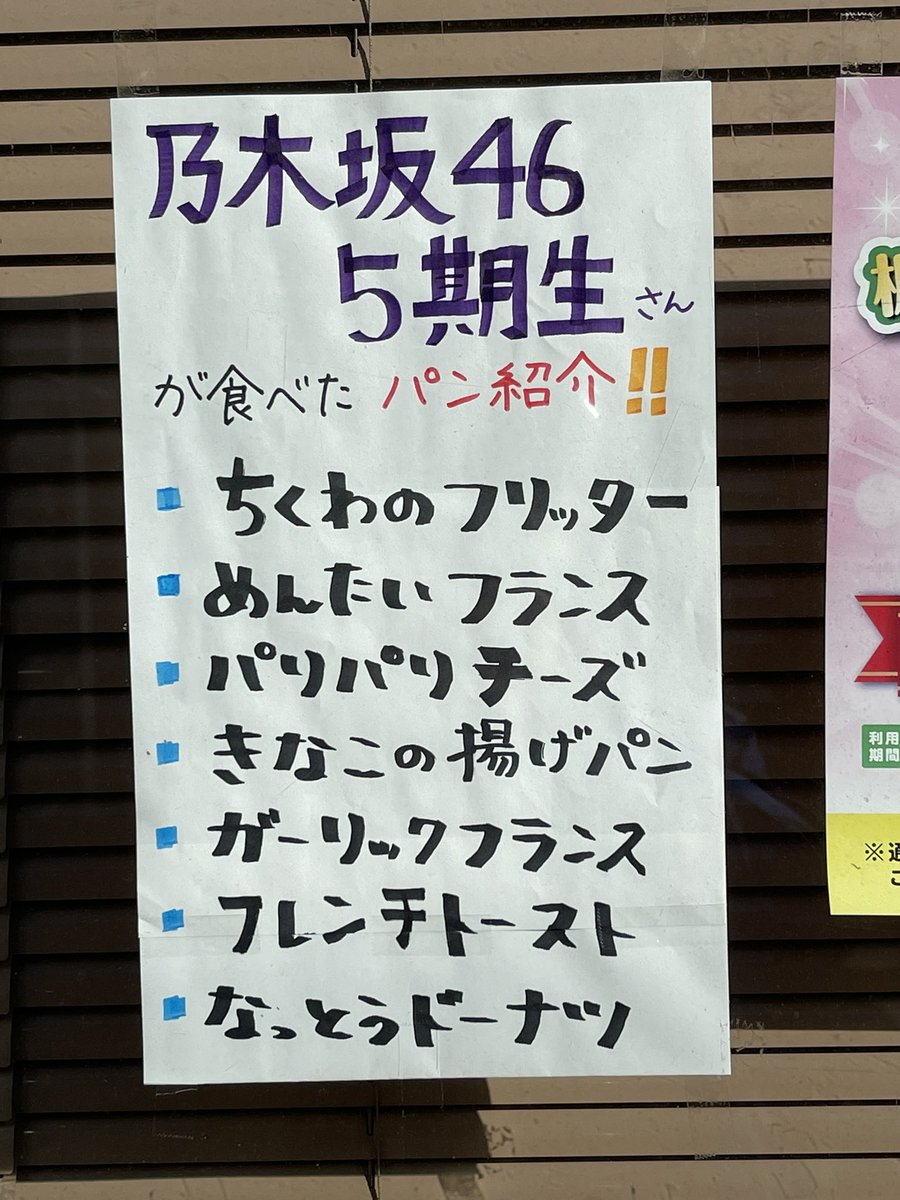 乃木坂46
5期生さん
が食べた パン紹介!!
ちくわのフリッター
めんたいフランス
パリパリチーズ
きなこの揚げパン
ガーリックフランス
フレンチトースト
なっとうドーナツ
利用
期間
※通